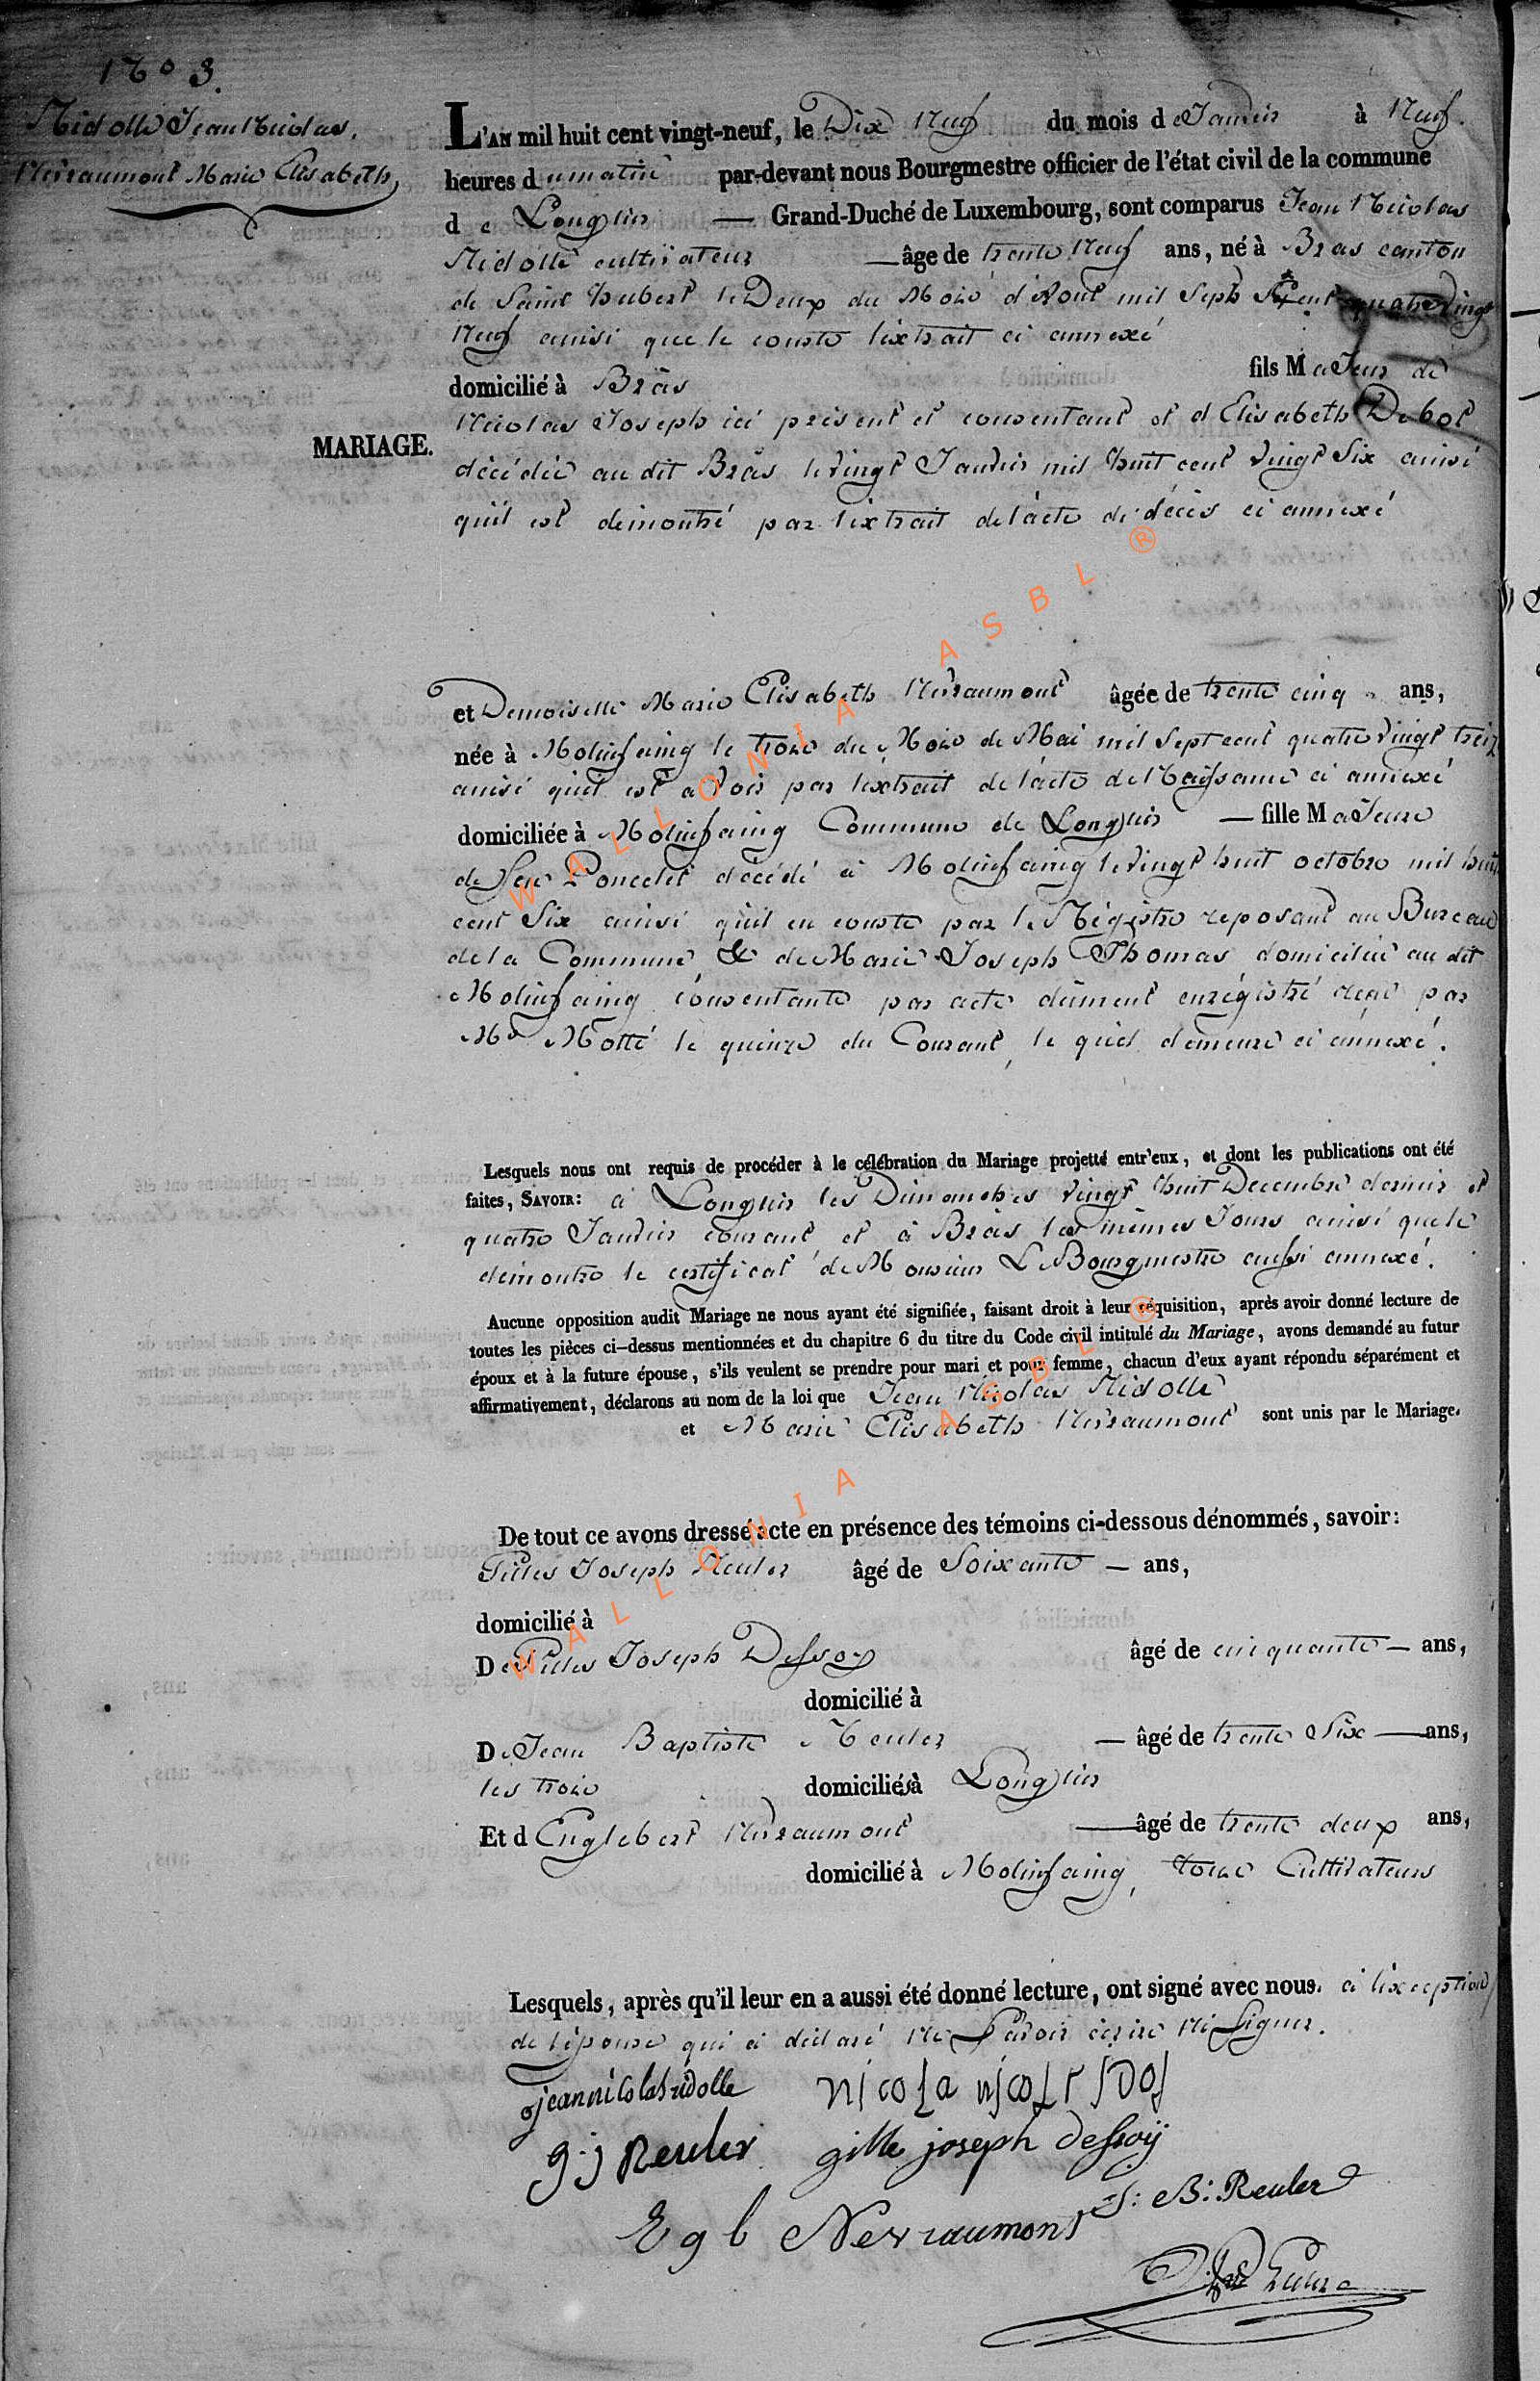 N° 3.
Ridolle Jean Nicolas,
Nerraumont Marie Elisabeth,
L'AN mil huit cent vingt-neuf, le Dix Neuf du mois de Janvier à Neuf
heures du matin par-devant nous Bourgmestre officier de l'état civil de la commune
de Longlier — Grand-Duché de Luxembourg, sont comparus Jean Nicolas
Ridolle cultivateur — âge de trente Neuf ans, né à Bras canton
de Saint hubert le Deux du Mois d'Aout mil Sept Cent quatre Vingt
Neuf ainsi que le conste l'extrait ci annexé
domicilié à Bras fils Majeur de
Nicolas Joseph ici présent et consentant et d'Elisabeth Debot
décédée au dit Bras le vingt Janvier mil huit cent vingt Six ainsi
MARIAGE.
qu'il est démontré par l'extrait de l'acte de décès ci annexé
et Demoiselle Marie Elisabeth Nerraumont âgée de trente cinq ans,
née à Molinfaing le trois du Mois de Mai mil sept cent quatre vingt treize
ainsi qu'il est a Voir par l'extrait de l'acte de Naissance ci annexé
domiciliée à Molinfaing Commune de Longlier — fille Majeure
de feu Poncelet décédé à Molinfaing le vingt huit octobre mil huit
cent Six ainsi qu'il en conste par le Régistre reposant au Bureau
de la Commune & de Marie Joseph Thomas domiciliée au dit
Molinfaing consentante par acte dûment enrégistré reçu par
Me Motté le quinze du Courant, le quel demeure ci annexé.
Lesquels nous ont requis de procéder à le célébration du Mariage projetté entr'eux, et dont les publications ont été
faites, SAVOIR: à Longlier les Dimanches vingt huit Decembre dernier et
quatre Janvier courant et à Bras les mêmes Jours ainsi que le
démontre le certificat de Monsieur Le Bourgmestre aussi annexé.
Aucune opposition audit Mariage ne nous ayant été signifiée, faisant droit à leur réquisition, après avoir donné lecture de
toutes les pièces ci-dessus mentionnées et du chapitre 6 du titre du Code civil intitulé du Mariage, avons demandé au futur
époux et à la future épouse, s'ils veulent se prendre pour mari et pour femme, chacun d'eux ayant répondu séparément et
affirmativement, déclarons au nom de la loi que Jean Nicolas Ridolle
et Marie Elisabeth Nerraumont sont unis par le Mariage.
De tout ce avons dressé acte en présence des témoins ci-dessous dénommés, savoir:
Gilles Joseph Reuler âgé de Soixante — ans,
domicilié à
De Gilles Joseph Dessoy âgé de cinquante — ans,
domicilié à
De Jean Baptiste Reuler — âgé de trente Six — ans,
les trois domiciliés à Longlier
Et d Englebert Nerraumont — âgé de trente deux ans,
domicilié à Molinfaing, tous Cultivateurs
Lesquels, après qu'il leur en a aussi été donné lecture, ont signé avec nous. à l'exception
de l'épouse qui a déclaré Ne Savoir écrire Ni Signer.
jean nicolas ridolle
g:j Reuler gille joseph dessoÿ
J: B: Reuler
Egb Nerraumont
WALLONIA ASBL ®
WALLONIA ASBL ®